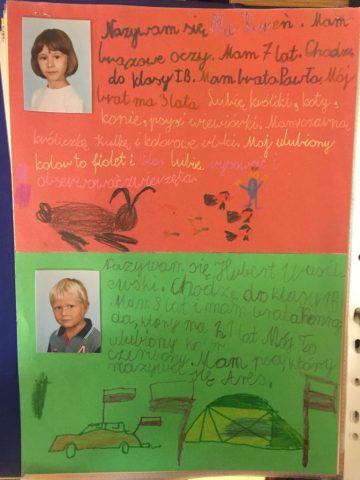 Nazywam się Stępień. Mam
brązowe oczy. Mam 7 lat. Chodzę
do klasy IB. Mam brata Pawła. Mój
brat ma 3 lata. Lubię króliki, koty,
konie, psy i wiewiórki. Mam czarną
króliczkę Kulkę i kolorowe rybki. Mój ulubiony
kolor to fiolet i róż lubię rysować i
obserwować zwierzęta.
Nazywam się Hubert Wasil
ewski. Chodzę do klasy IB.
Mam 8 lat i mam brata
da, który ma lat. Mój
ulubiony to
czerwony. Mam psa, który
nazywa się Ares.